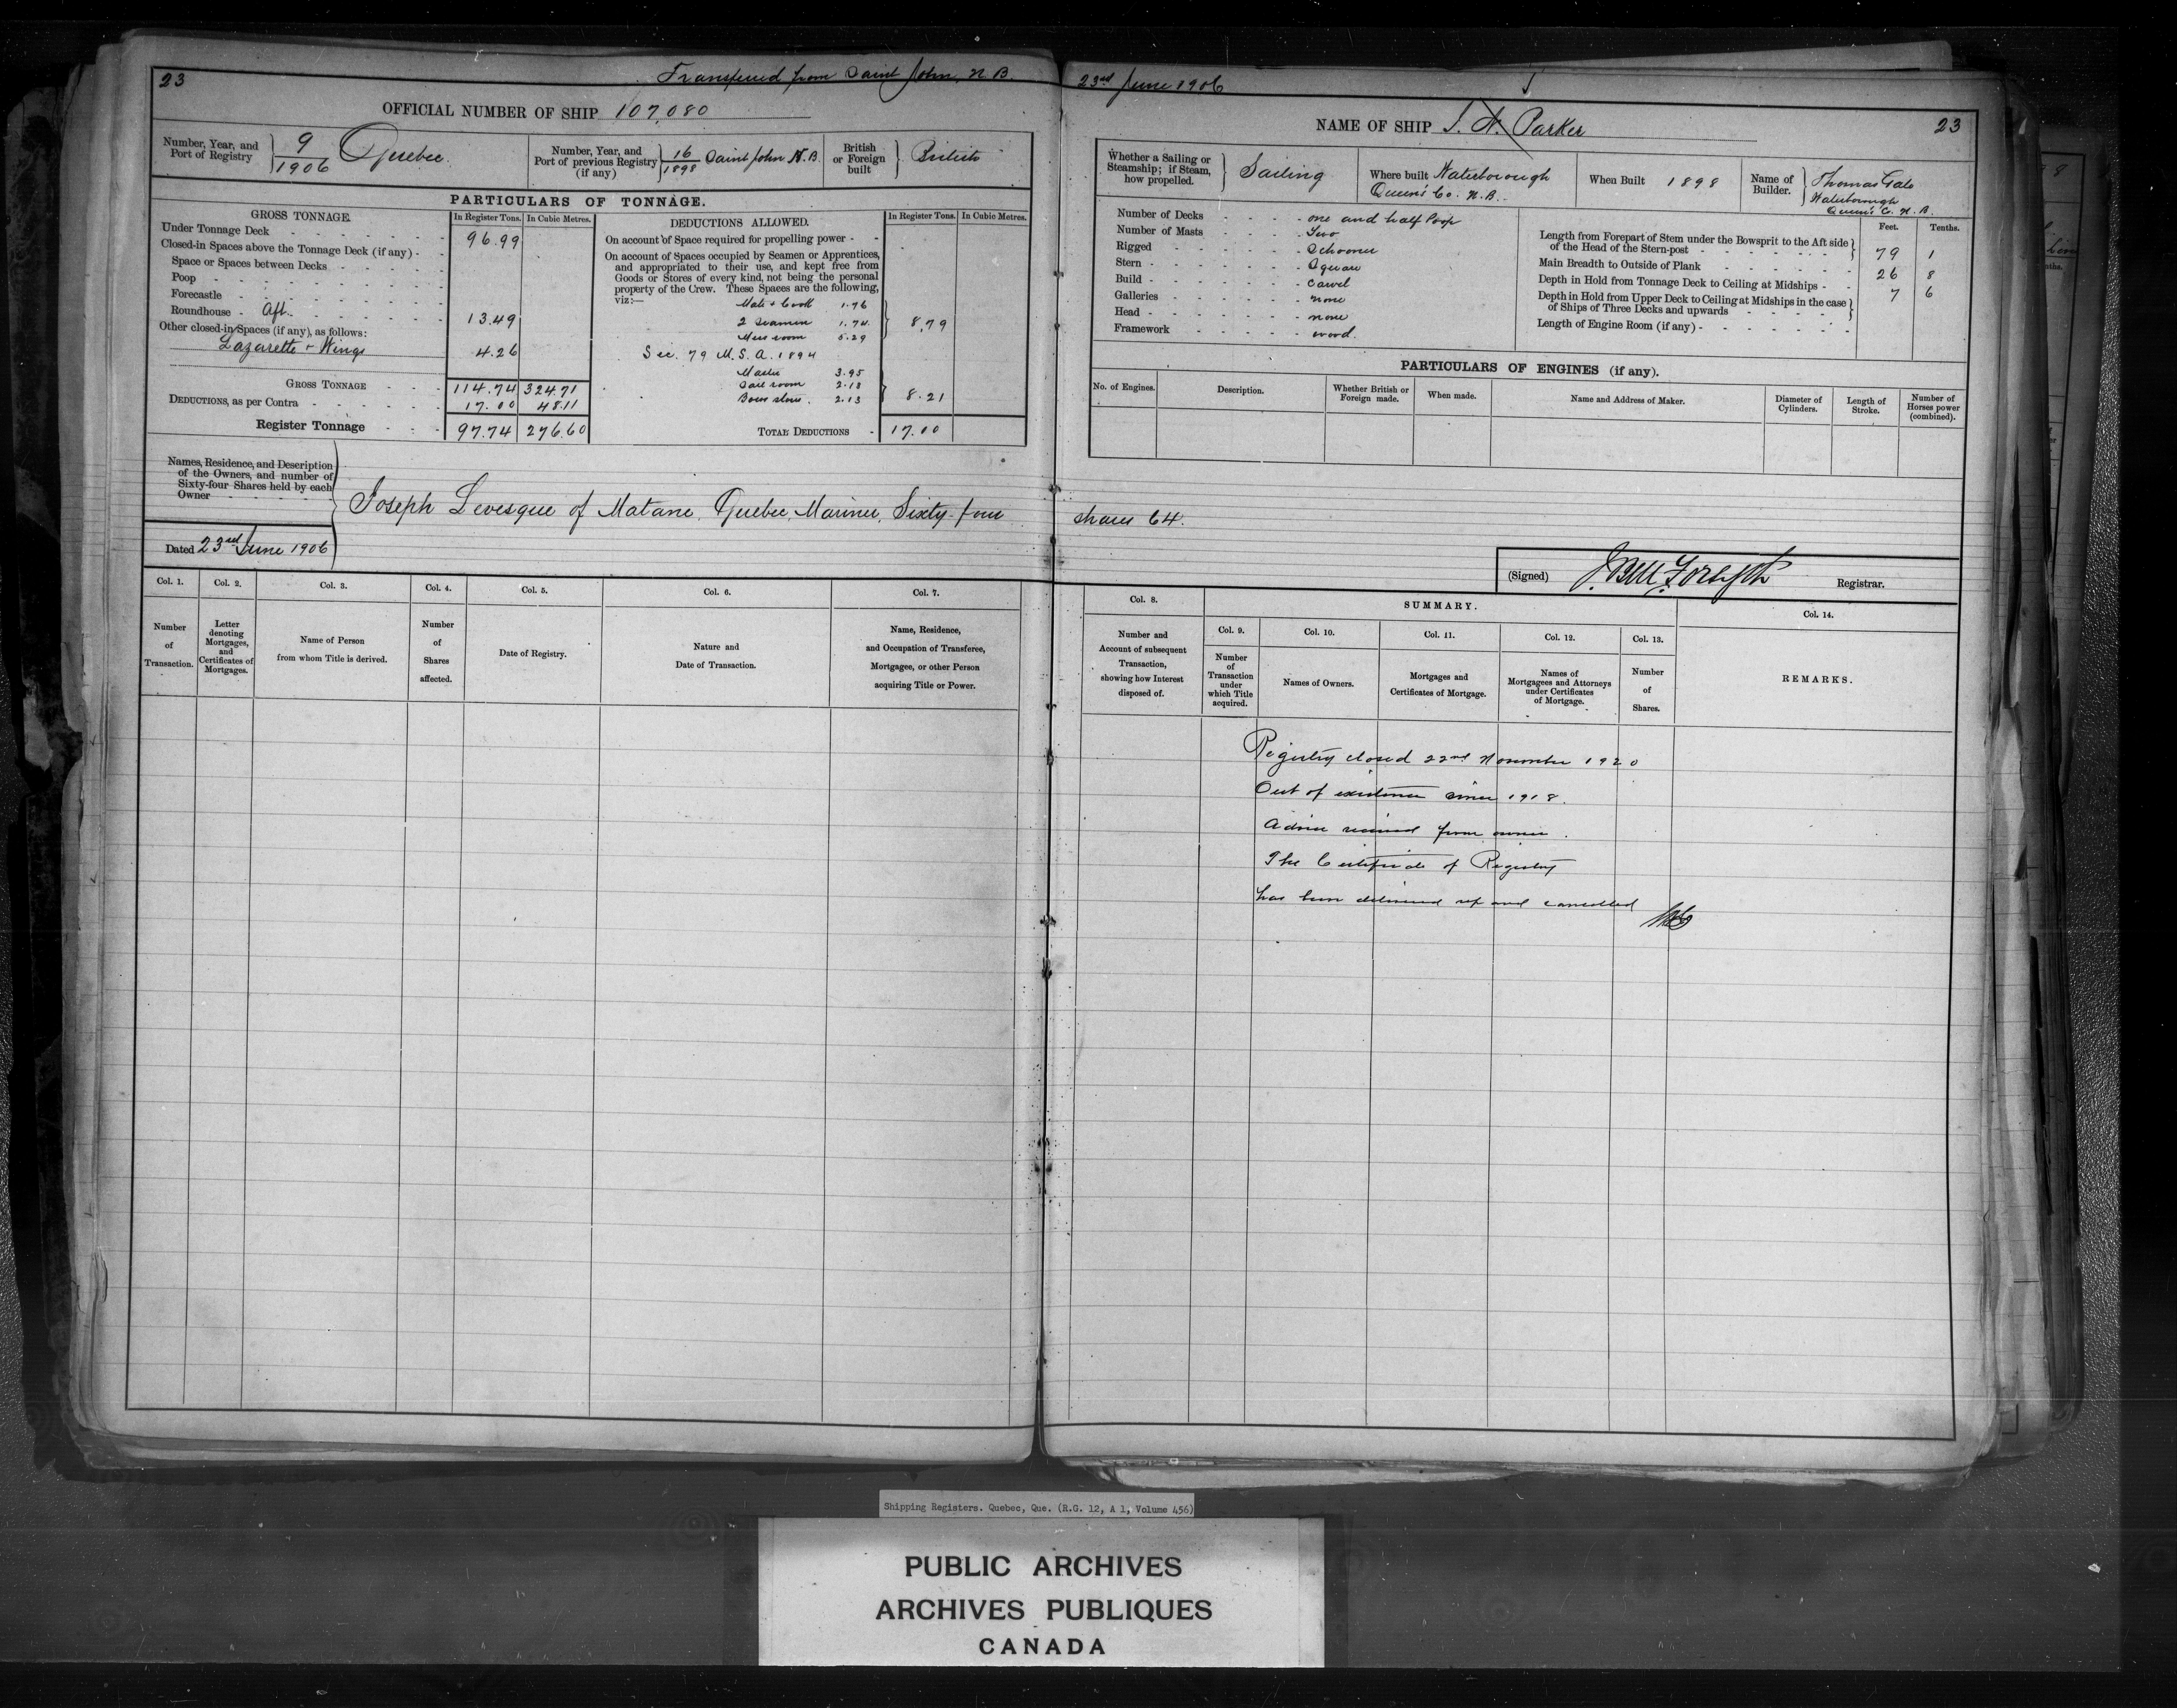 23
Transferred from Saint John, N. B. 23rd June 1906
OFFICIAL NUMBER OF SHIP 107,080
Number, Year, and Port of Registry 9/1906 Quebec.
Number, Year, and Port of previous Registry (if any) 16/1898 Saint John N. B.
British or Foreign built British
PARTICULARS OF TONNAGE.
GROSS TONNAGE. In Register Tons. In Cubic Metres.
Under Tonnage Deck 96.99
Closed-in Spaces above the Tonnage Deck (if any)
Space or Spaces between Decks
Poop
Forecastle
Roundhouse Aft. 13.49
Other closed-in Spaces (if any), as follows:
Lazarette + Wings 4.26
GROSS TONNAGE 114.74 324.71
DEDUCTIONS, as per Contra 17.00 48.11
Register Tonnage 97.74 276.60
DEDUCTIONS ALLOWED. In Register Tons. In Cubic Metres.
On account of Space required for propelling power
On account of Spaces occupied by Seamen or Apprentices,
and appropriated to their use, and kept free from
Goods or Stores of every kind, not being the personal
property of the Crew. These Spaces are the following,
viz:—
Mate + Cook 1.76
2 Seamen 1.74
Mess room 5.29
8.79
Sec. 79 M. S. A. 1894
Master 3.95
Sail room 2.13
Bosns store. 2.13
8.21
TOTAL DEDUCTIONS 17.00
Names, Residence, and Description
of the Owners, and number of
Sixty-four Shares held by each
Owner
Joseph Levesque of Matane, Quebec, Mariner, Sixty four shares 64.
Dated 23rd June 1906
Col. 1. Number of Transaction.
Col. 2. Letter denoting Mortgages, and Certificates of Mortgages.
Col. 3. Name of Person from whom Title is derived.
Col. 4. Number of Shares affected.
Col. 5. Date of Registry.
Col. 6. Nature and Date of Transaction.
Col. 7. Name, Residence, and Occupation of Transferee, Mortgagee, or other Person acquiring Title or Power.
NAME OF SHIP Parker
23
Whether a Sailing or Steamship; if Steam, how propelled. Sailing
Where built Waterborough Queen's Co. N. B.
When Built 1898
Name of Builder. Thomas Gale Waterborough Queen's C. N. B.
Number of Decks one and half Poop
Number of Masts Two
Rigged Schooner
Stern Square
Build Carvel
Galleries none
Head none
Framework wood.
Feet. Tenths.
Length from Forepart of Stem under the Bowsprit to the Aft side
of the Head of the Stern-post 79 1
Main Breadth to Outside of Plank 26 8
Depth in Hold from Tonnage Deck to Ceiling at Midships 7 6
Depth in Hold from Upper Deck to Ceiling at Midships in the case
of Ships of Three Decks and upwards
Length of Engine Room (if any)
PARTICULARS OF ENGINES (if any).
No. of Engines. Description. Whether British or Foreign made. When made. Name and Address of Maker. Diameter of Cylinders. Length of Stroke. Number of Horses power (combined).
(Signed) J. Bell Forsyth Registrar.
Col. 8. Number and Account of subsequent Transaction, showing how Interest disposed of.
SUMMARY.
Col. 9. Number of Transaction under which Title acquired.
Col. 10. Names of Owners.
Col. 11. Mortgages and Certificates of Mortgage.
Col. 12. Names of Mortgagees and Attorneys under Certificates of Mortgage.
Col. 13. Number of Shares.
Col. 14. REMARKS.
Registry closed 22nd November 1920
Out of existence since 1918.
Advice received from owner.
The Certificate of Registry
has been delivered up and cancelled
Shipping Registers. Quebec, Que. (R.G. 12, A 1, Volume 456)
PUBLIC ARCHIVES
ARCHIVES PUBLIQUES
CANADA